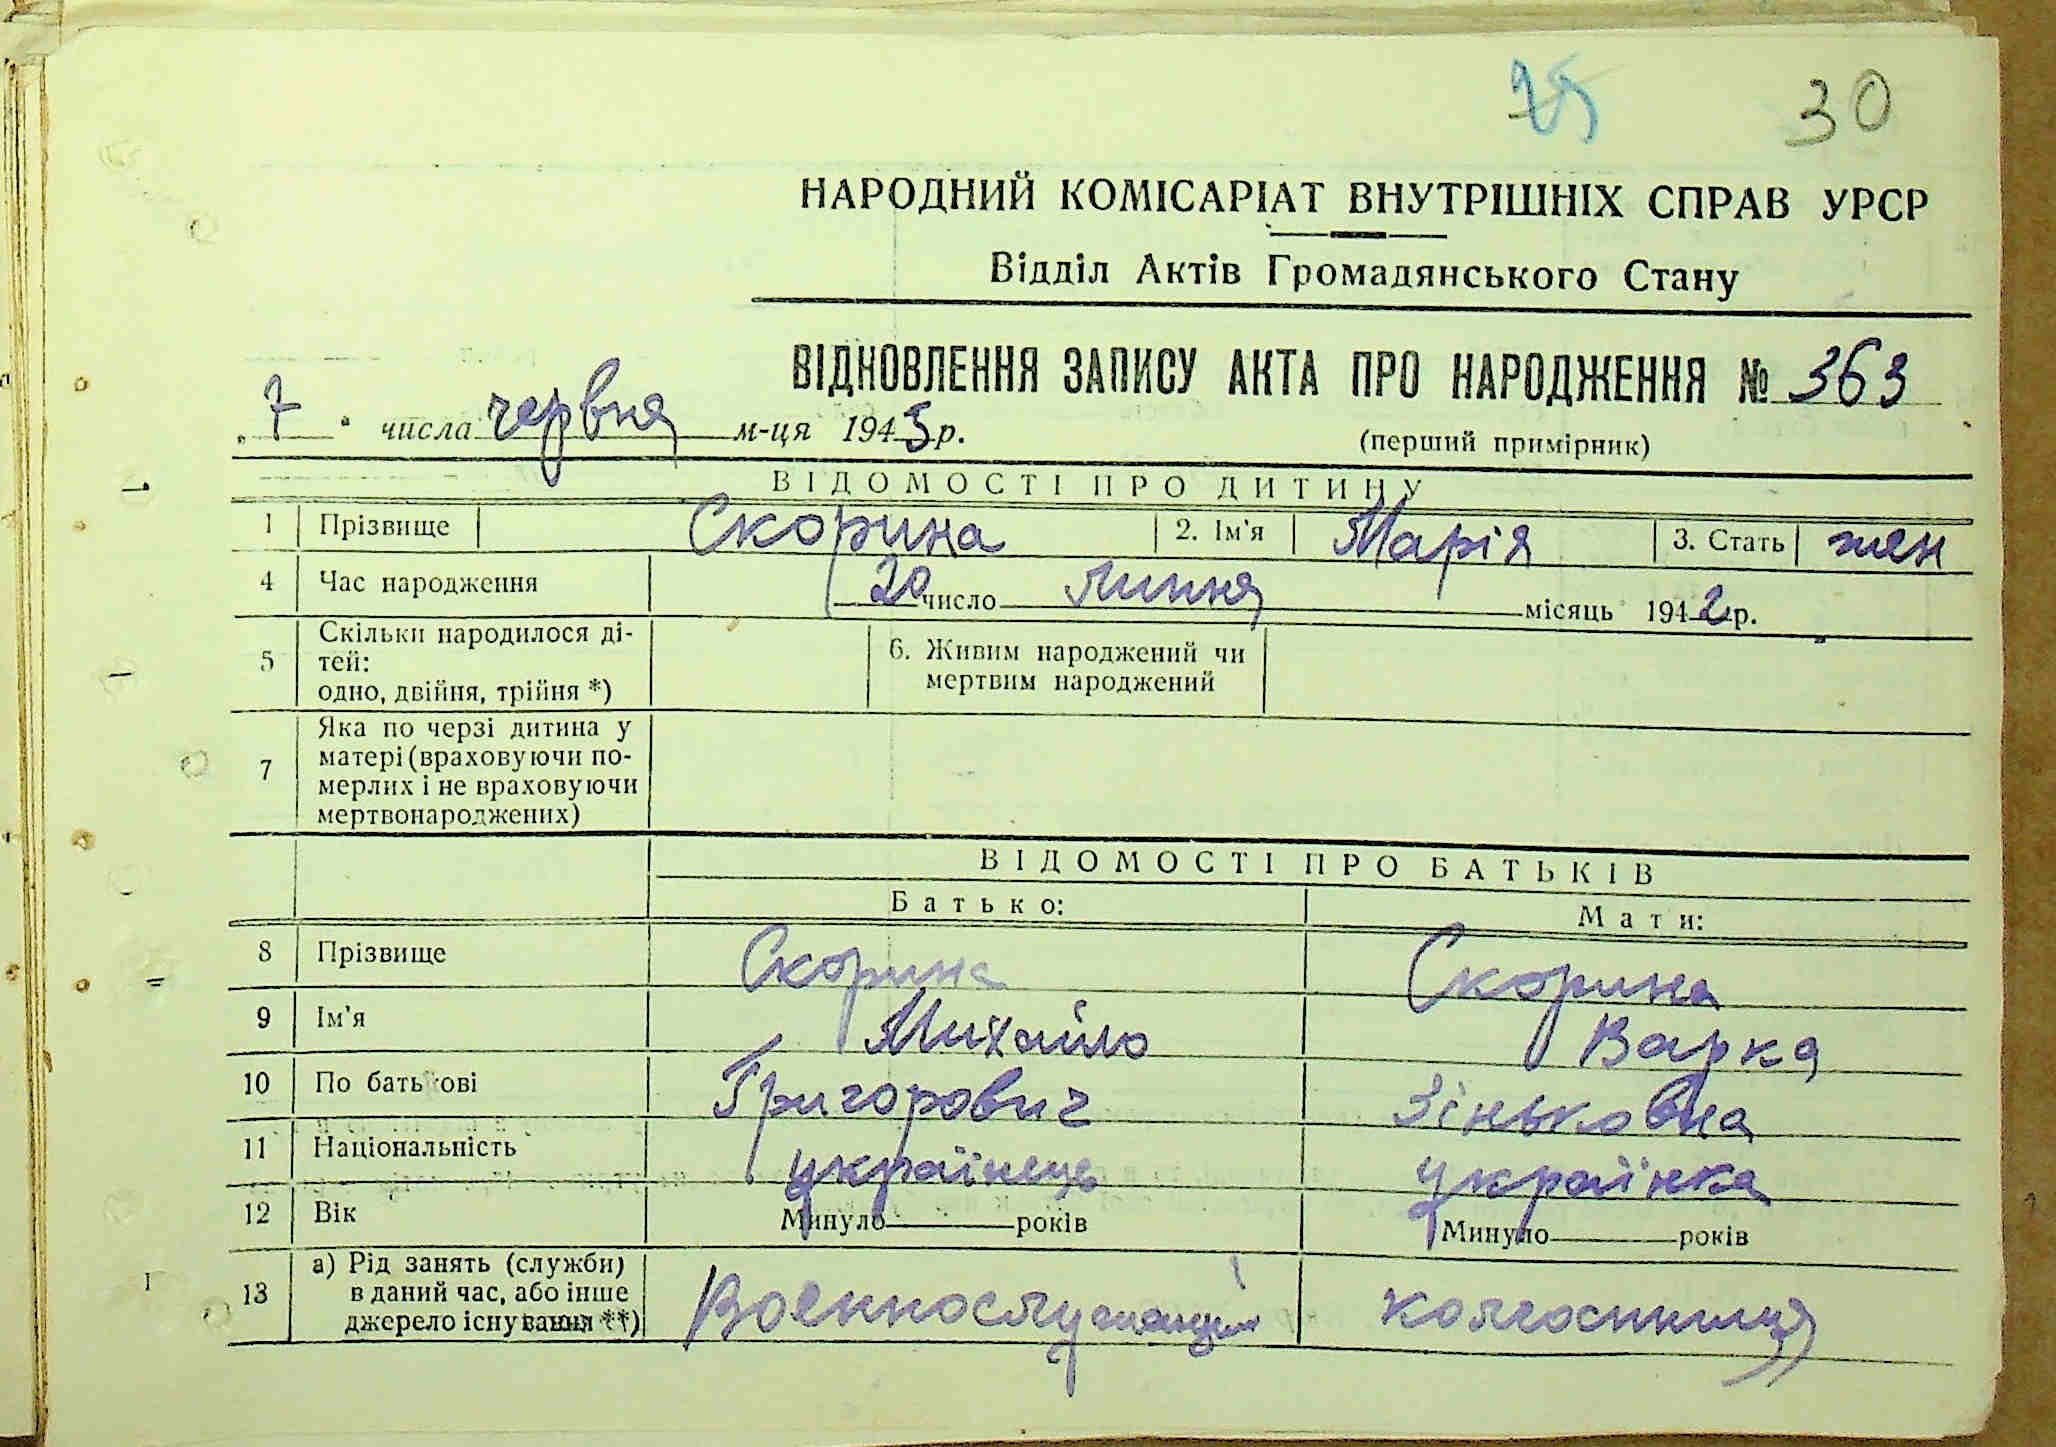 25 30
НАРОДНИЙ КОМІСАРІАТ ВНУТРІШНІХ СПРАВ УРСР
Відділ Актів Громадянського Стану
ВІДНОВЛЕННЯ ЗАПИСУ АКТА ПРО НАРОДЖЕННЯ № 363
„7“ числа червня м-ця 1945 р.
(перший примірник)
ВІДОМОСТІ ПРО ДИТИНУ
1 Прізвище Скорина 2. Ім'я Марія 3. Стать жен
4 Час народження 20 число липня місяць 1942 р.
5 Скільки народилося ді-
тей:
одно, двійня, трійня *)
6. Живим народжений чи
мертвим народжений
7 Яка по черзі дитина у
матері (враховуючи по-
мерлих і не враховуючи
мертвонароджених)
ВІДОМОСТІ ПРО БАТЬКІВ
Батько: Мати:
8 Прізвище Скорина Скорина
9 Ім'я Михайло Варка
10 По батькові Григорович Зіньковна
11 Національність українець українка
12 Вік Минуло років Минуло років
13 а) Рід занять (служби)
в даний час, або інше
джерело існування **)
Военнослужащий колгоспниця